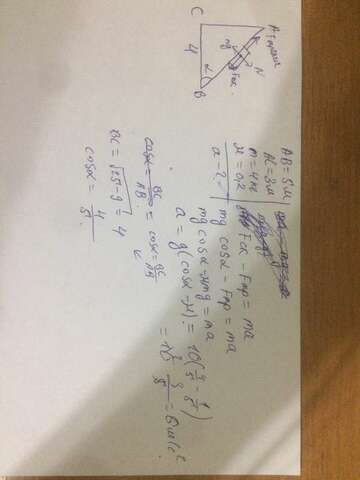 C
A
Fтрения
N
mg
4
Fск.
α
B
AB = 5м
AC = 3м
m = 4кг
μ = 0,2
a - ?
Fск - Fтр = ma
mg cosα - Fтр = ma
mg cosα - μmg = ma
a = g(cosα - μ) = 10(4/5 - 1/5)
= 10 · 3/5 = 6 м/с²
cosα = BC/AB = cosα = BC/AB
BC = √25-9 = 4
cosα = 4/5